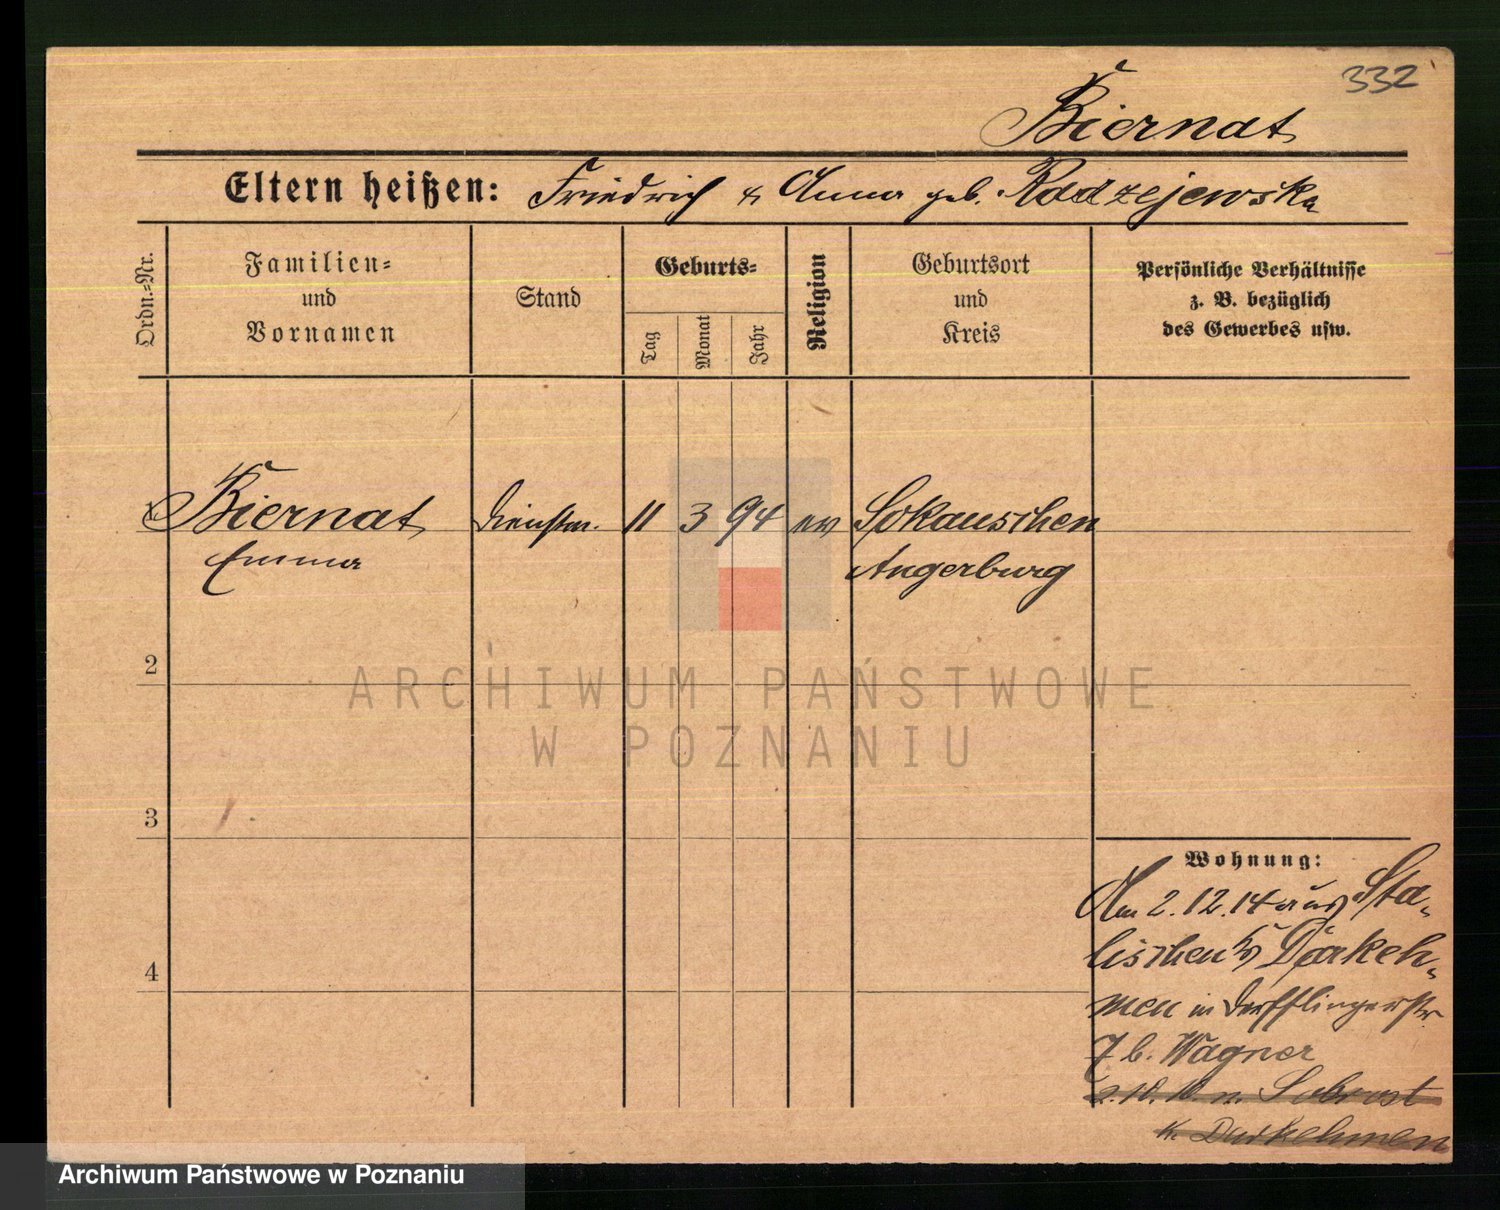 332
Biernat
Eltern heißen: Friedrich & Anna geb. Radzejewska
Ordn.=Nr.
Familien=
und
Vornamen
Stand
Geburts=
Tag
Monat
Jahr
Religion
Geburtsort
und
Kreis
Persönliche Verhältnisse
z. B. bezüglich
des Gewerbes usw.
1 Biernat Dienstm. 11 3 94 ev Sokauschen
Emma Angerburg
2
ARCHIWUM PAŃSTWOWE
W POZNANIU
3
Wohnung:
Am 2.12.14 aus Sta-
lischen Darkeh-
4
men in Derfflingerstr
7 b. Wagner
n. Sobrost
K. Darkehmen
Archiwum Państwowe w Poznaniu